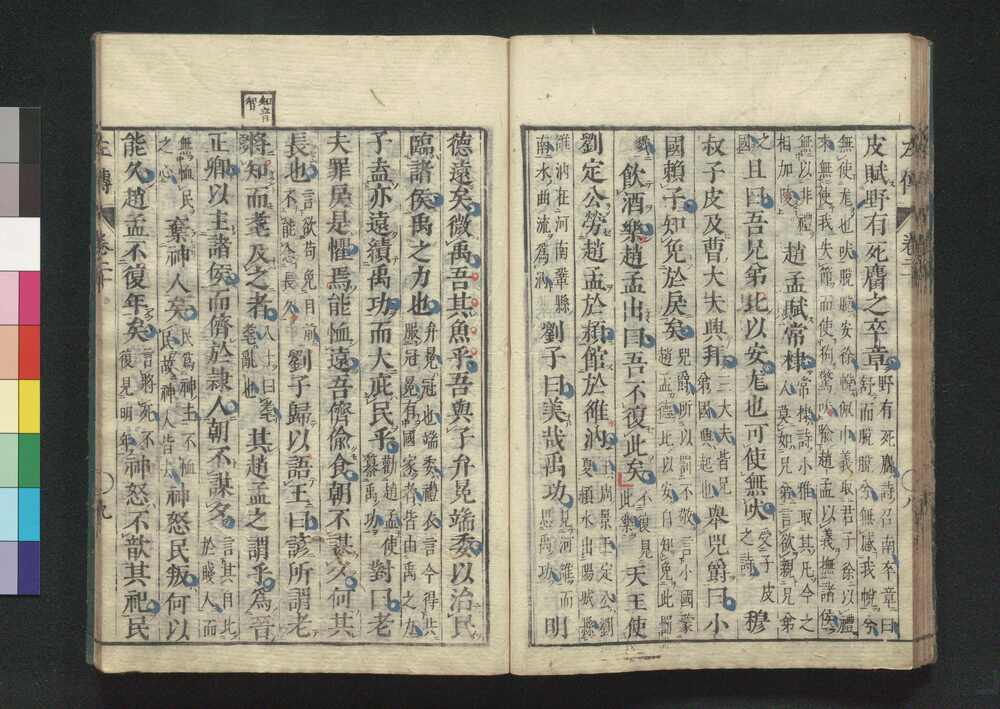 左傳
卷二十
〇八
皮賦野有死麕之卒章野有死麕詩召南卒章曰舒而脫脫兮無感我帨兮
無使尨也吠脫脫安徐帨佩巾義取君子徐以禮來無使我失節而使狗驚吠喻趙孟以義撫諸侯
無以非禮相加陵趙孟賦常棣常棣詩小雅取其凡今之人莫如兄弟言欲親兄弟
之國且曰吾兄弟比以安尨也可使無吠受子皮之詩穆
叔子皮及曹大夫興拜三大夫皆兄弟國興起也舉兕爵曰小
國賴子知免於戾矣兕爵所以罰不敬言小國蒙趙孟德比以安自知免此罰
戮飲酒樂趙孟出曰吾不復此矣不復見此樂天王使
劉定公勞趙孟於潁館於雒汭王周景王定公劉夏潁水出陽城縣
雒汭在河南鞏縣南水曲流為汭劉子曰美哉禹功見河雒而思禹功明
德遠矣微禹吾其魚乎吾與子弁冕端委以治民
臨諸侯禹之力也弁冕冠也端委禮衣言今得共服冠冕有國家者皆由禹之力
子盍亦遠績禹功而大庇民乎勸趙孟使纂禹功對曰老
夫罪戾是懼焉能恤遠吾儕偷食朝不謀夕何其
長也言欲苟免目前不能念長久劉子歸以語王曰諺所謂老
知音智
將知而耄及之者八十曰耄耄亂也其趙孟之謂乎為晉
正卿以主諸侯而儕於隷人朝不謀夕言其自比於賤人而
無恤民之心棄神人矣民為神主不恤民故神人皆去神怒民叛何以
能久趙孟不復年矣言將死不復見明年神怒不歆其祀民
左傳
卷二十
〇九